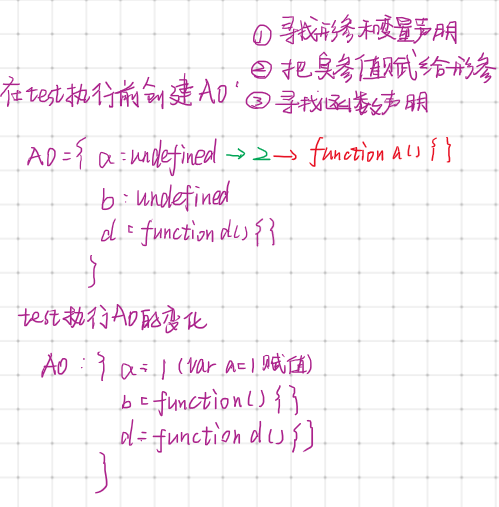 ① 寻找形参和变量声明
② 把实参值赋给形参
在test执行前创建AO
③ 寻找函数声明
AO={ a:undefined → 2 → function a() {}
b:undefined
d:function d() {}
}
test执行AO的变化
AO:{ a=1 (var a=1 赋值)
b=function() {}
d=function d() {}
}